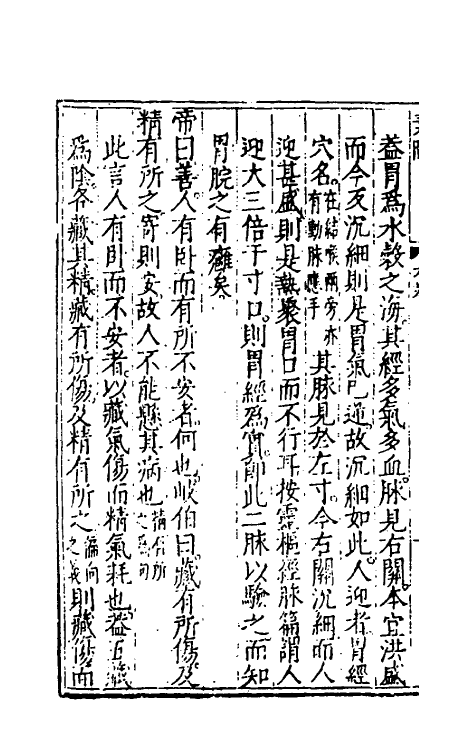 蓋胃爲水穀之海其經多氣多血脉見右關本宜洪盛
而今反沉細則是胃氣已逆故沉細如此人迎者胃經
穴名在結喉兩旁亦有動脉應手其脉見於左寸今右關沉細而人
迎甚盛則是熱聚胃口而不行耳按靈樞經脉篇謂人
迎大三倍于寸口則胃經爲實即此二脉以驗之而知
胃脘之有癰矣
帝曰善人有卧而有所不安者何也岐伯曰藏有所傷及
精有所之寄則安故人不能懸其病也
此言人有卧而不安者以藏氣傷而精氣耗也蓋五臟
爲陰各藏其精藏有所傷及精有所之則藏傷而